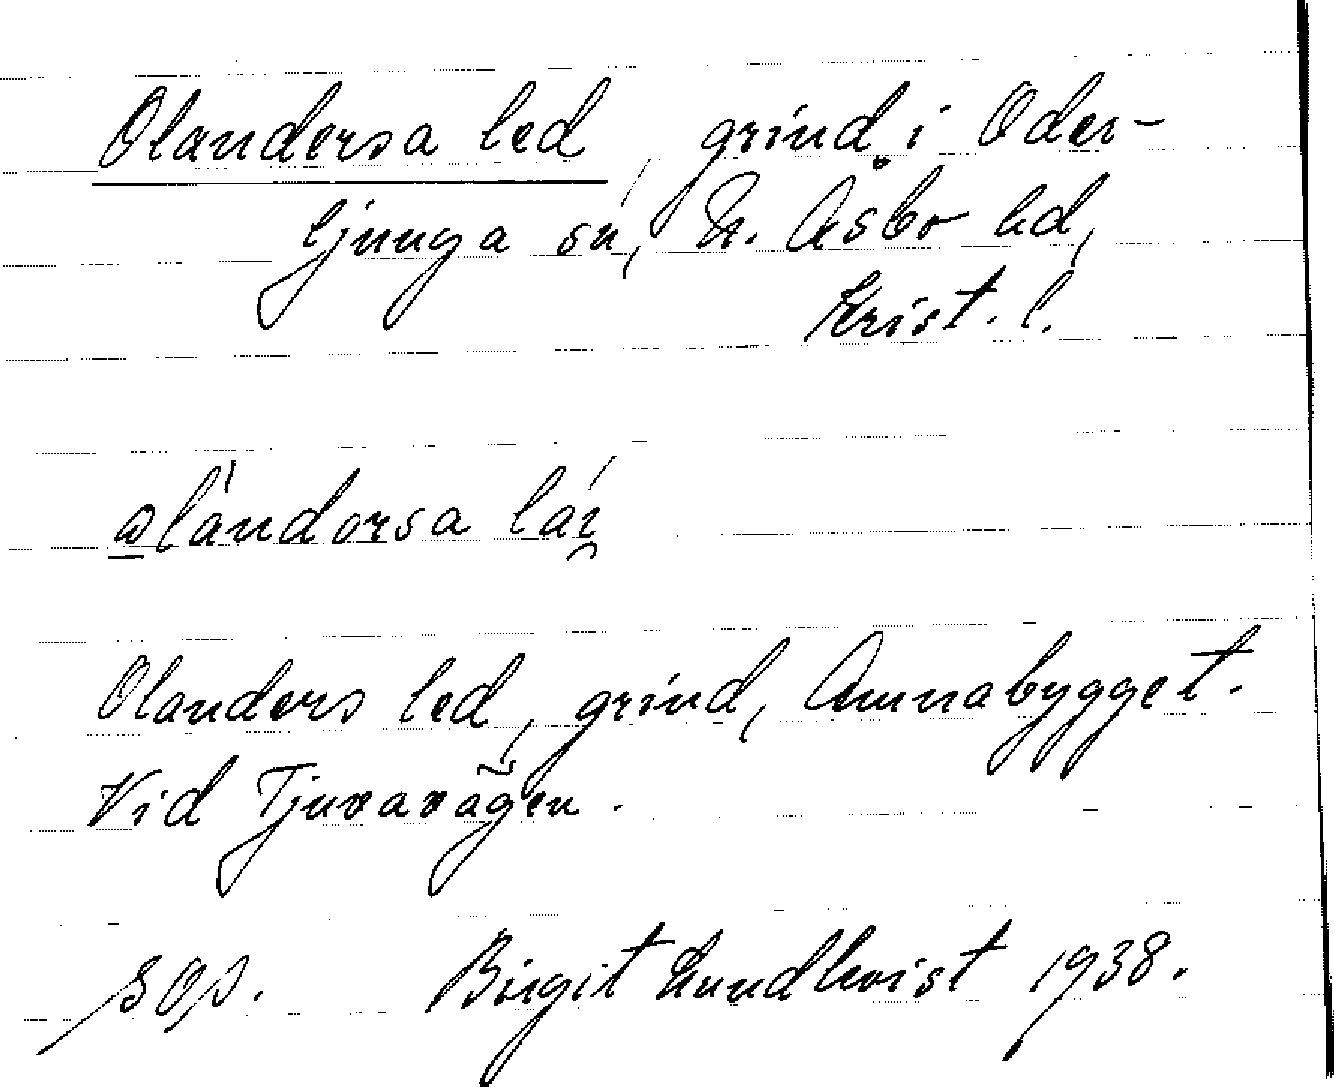 Olandersa led, grind i Oder-
ljunga sn, N. Åsbo hd,
Krist. l.
Olanders led, grind, Annabygget.
Vid Tjuvavägen.
Birgit Lundkvist 1938.